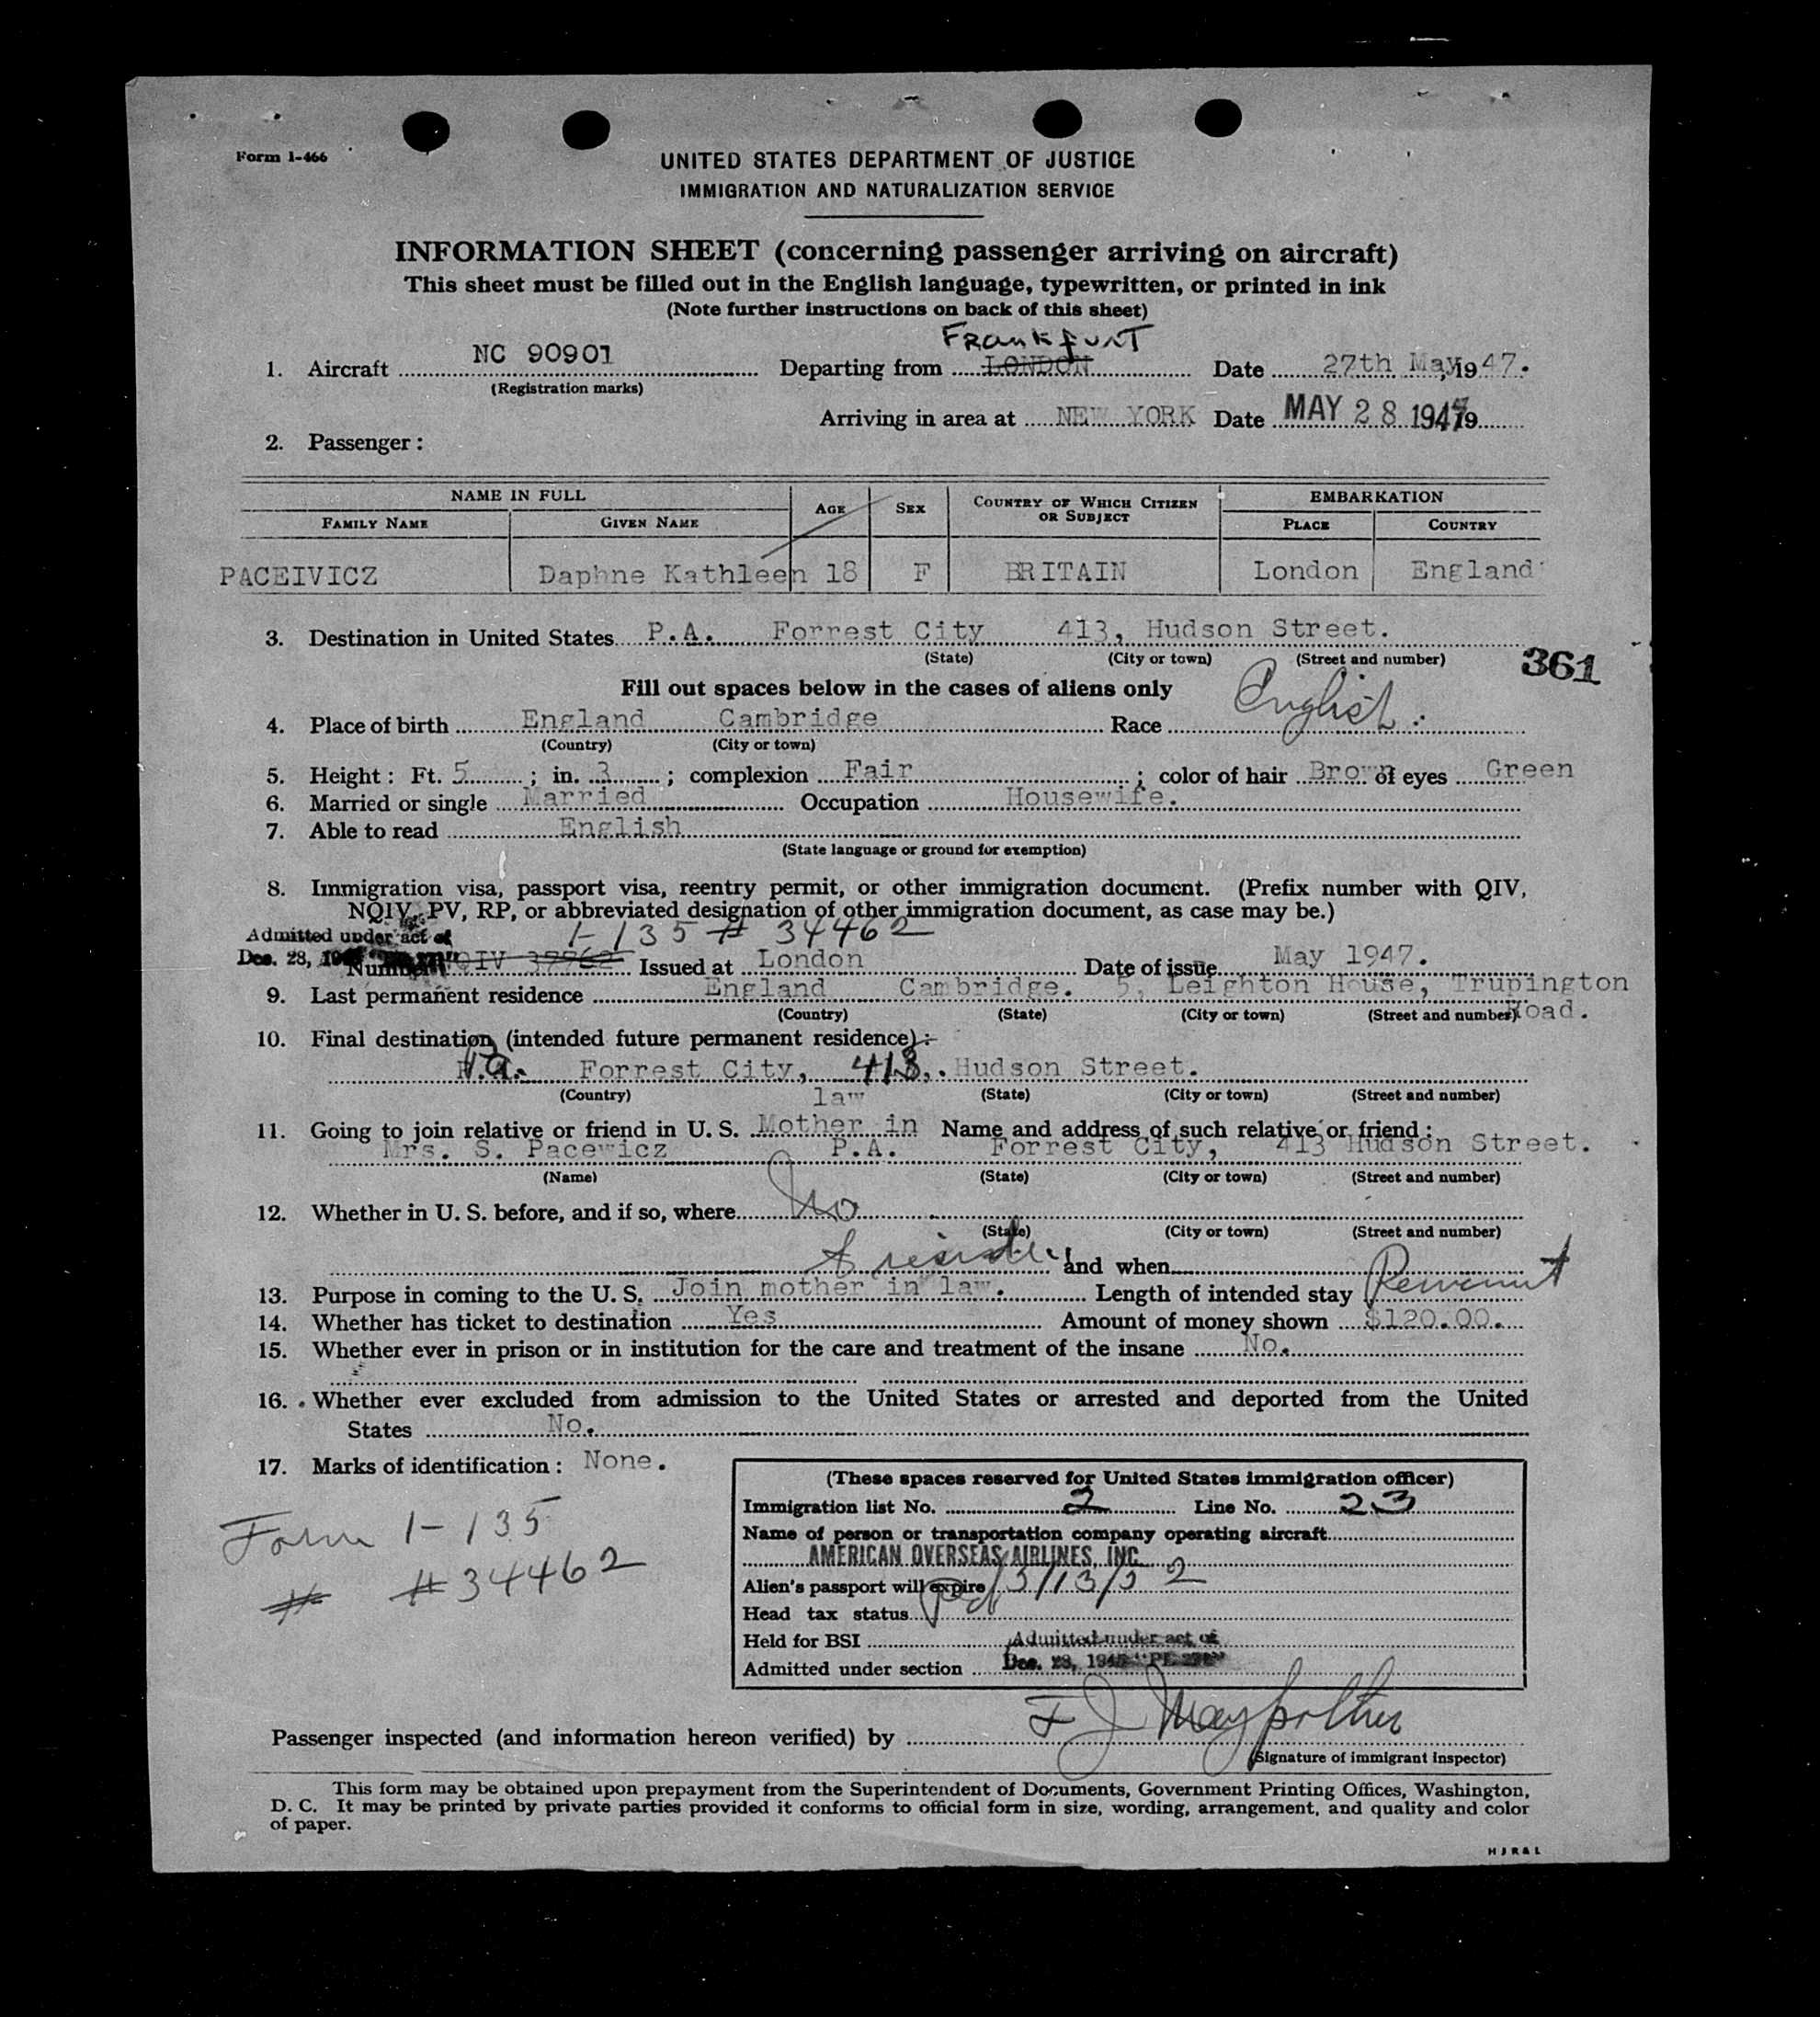 Form I-466
UNITED STATES DEPARTMENT OF JUSTICE
IMMIGRATION AND NATURALIZATION SERVICE
INFORMATION SHEET (concerning passenger arriving on aircraft)
This sheet must be filled out in the English language, typewritten, or printed in ink
(Note further instructions on back of this sheet)
Frankfurt
1. Aircraft NC 90901 Departing from LONDON Date 27th May, 1947.
(Registration marks)
Arriving in area at NEW YORK Date MAY 28 1947 19
2. Passenger:
NAME IN FULL AGE SEX COUNTRY OF WHICH CITIZEN OR SUBJECT EMBARKATION
FAMILY NAME GIVEN NAME PLACE COUNTRY
PACEIVICZ Daphne Kathleen 18 F BRITAIN London England
3. Destination in United States P.A. Forrest City 413, Hudson Street.
(State) (City or town) (Street and number)
361
Fill out spaces below in the cases of aliens only
4. Place of birth England Cambridge Race English
(Country) (City or town)
5. Height: Ft. 5 ; in. 3 ; complexion Fair ; color of hair Brown of eyes Green
6. Married or single Married Occupation Housewife.
7. Able to read English
(State language or ground for exemption)
8. Immigration visa, passport visa, reentry permit, or other immigration document. (Prefix number with QIV,
NQIV, PV, RP, or abbreviated designation of other immigration document, as case may be.)
Admitted under act of I-135 # 34462
Dec. 28, Number QIV 37762 Issued at London Date of issue May 1947.
9. Last permanent residence England Cambridge. 5, Leighton House, Trupington
(Country) (State) (City or town) (Street and number) Road.
10. Final destination (intended future permanent residence):
Forrest City, 413, Hudson Street.
(Country) law (State) (City or town) (Street and number)
11. Going to join relative or friend in U. S. Mother in Name and address of such relative or friend:
Mrs. S. Pacewicz P.A. Forrest City, 413 Hudson Street.
(Name) (State) (City or town) (Street and number)
12. Whether in U. S. before, and if so, where No
(State) (City or town) (Street and number)
and when
13. Purpose in coming to the U. S. Join mother in law. Length of intended stay
14. Whether has ticket to destination Yes Amount of money shown $120.00.
15. Whether ever in prison or in institution for the care and treatment of the insane No.
16. Whether ever excluded from admission to the United States or arrested and deported from the United
States No.
17. Marks of identification: None.
Form I-135
# #34462
(These spaces reserved for United States immigration officer)
Immigration list No. 2 Line No. 23
Name of person or transportation company operating aircraft
AMERICAN OVERSEAS AIRLINES, INC.
Alien's passport will expire 5/13/52
Head tax status Pd
Held for BSI
Admitted under act of
Admitted under section Dec. 28, 1945
Passenger inspected (and information hereon verified) by F J
(Signature of immigrant inspector)
This form may be obtained upon prepayment from the Superintendent of Documents, Government Printing Offices, Washington,
D. C. It may be printed by private parties provided it conforms to official form in size, wording, arrangement, and quality and color
of paper.
HJR&L